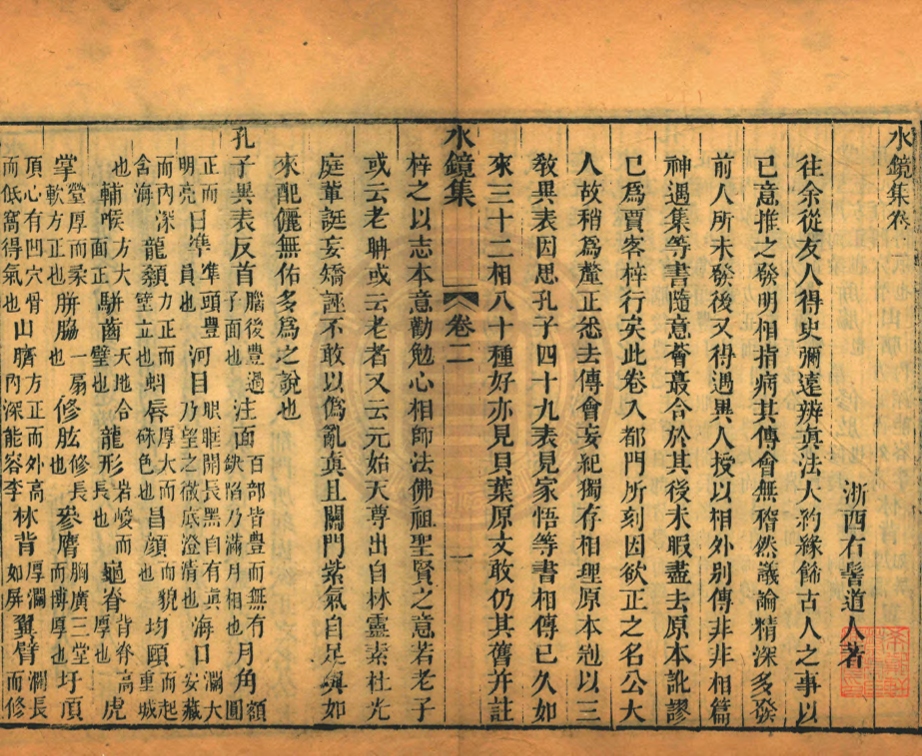 水鏡集卷二
浙西右髻道人著
往余從友人得史彌遠辨眞法大約緣飾古人之事以
已意推之發明相指病其傳會無稽然議論精深多發
前人所未發後又得遇異人授以相外別傳非非相篇
神遇集等書隨意薈叢合於其後未暇盡去原本訛謬
已爲賈客梓行矣此卷入都門所刻因欲正之名公大
人故稍爲釐正悉去傳會妄紀獨存相理原本冠以三
敎異表因思孔子四十九表見家悟等書相傳已久如
來三十二相八十種好亦見貝葉原文敢仍其舊幷註
水鏡集 卷二 一
梓之以志本意勸勉心相師法佛祖聖賢之意若老子
或云老聃或云老者又云元始天尊出自林靈素杜光
庭輩誕妄矯誣不敢以僞亂眞且關門紫氣自足與如
來配儷無佑多爲之說也
孔子異表反首腦後豐過子面也注面百部皆豐而無有缺陷乃滿月相也月角額圓
正而明亮也日準準頭豐員也河目眼眶開長黑白有眞乃望之微底澄清也海口濶大安藏
而內深龍顙力正而壁立也蚪唇厚大而硃色也昌顏而貌也均頤而起重城
舍海也輔喉方大面正駢齒天地合璧也龍形岩峻而長也龜脊背脊高厚也虎
掌堂厚而柔軟方正也胼脇一扇也修肱修長也參膺胸廣三堂而博厚也圩頂
頂心有凹穴骨而低窩得氣也山臍方正而外高內深能容李林背厚濶如屏翼臂濶長而修